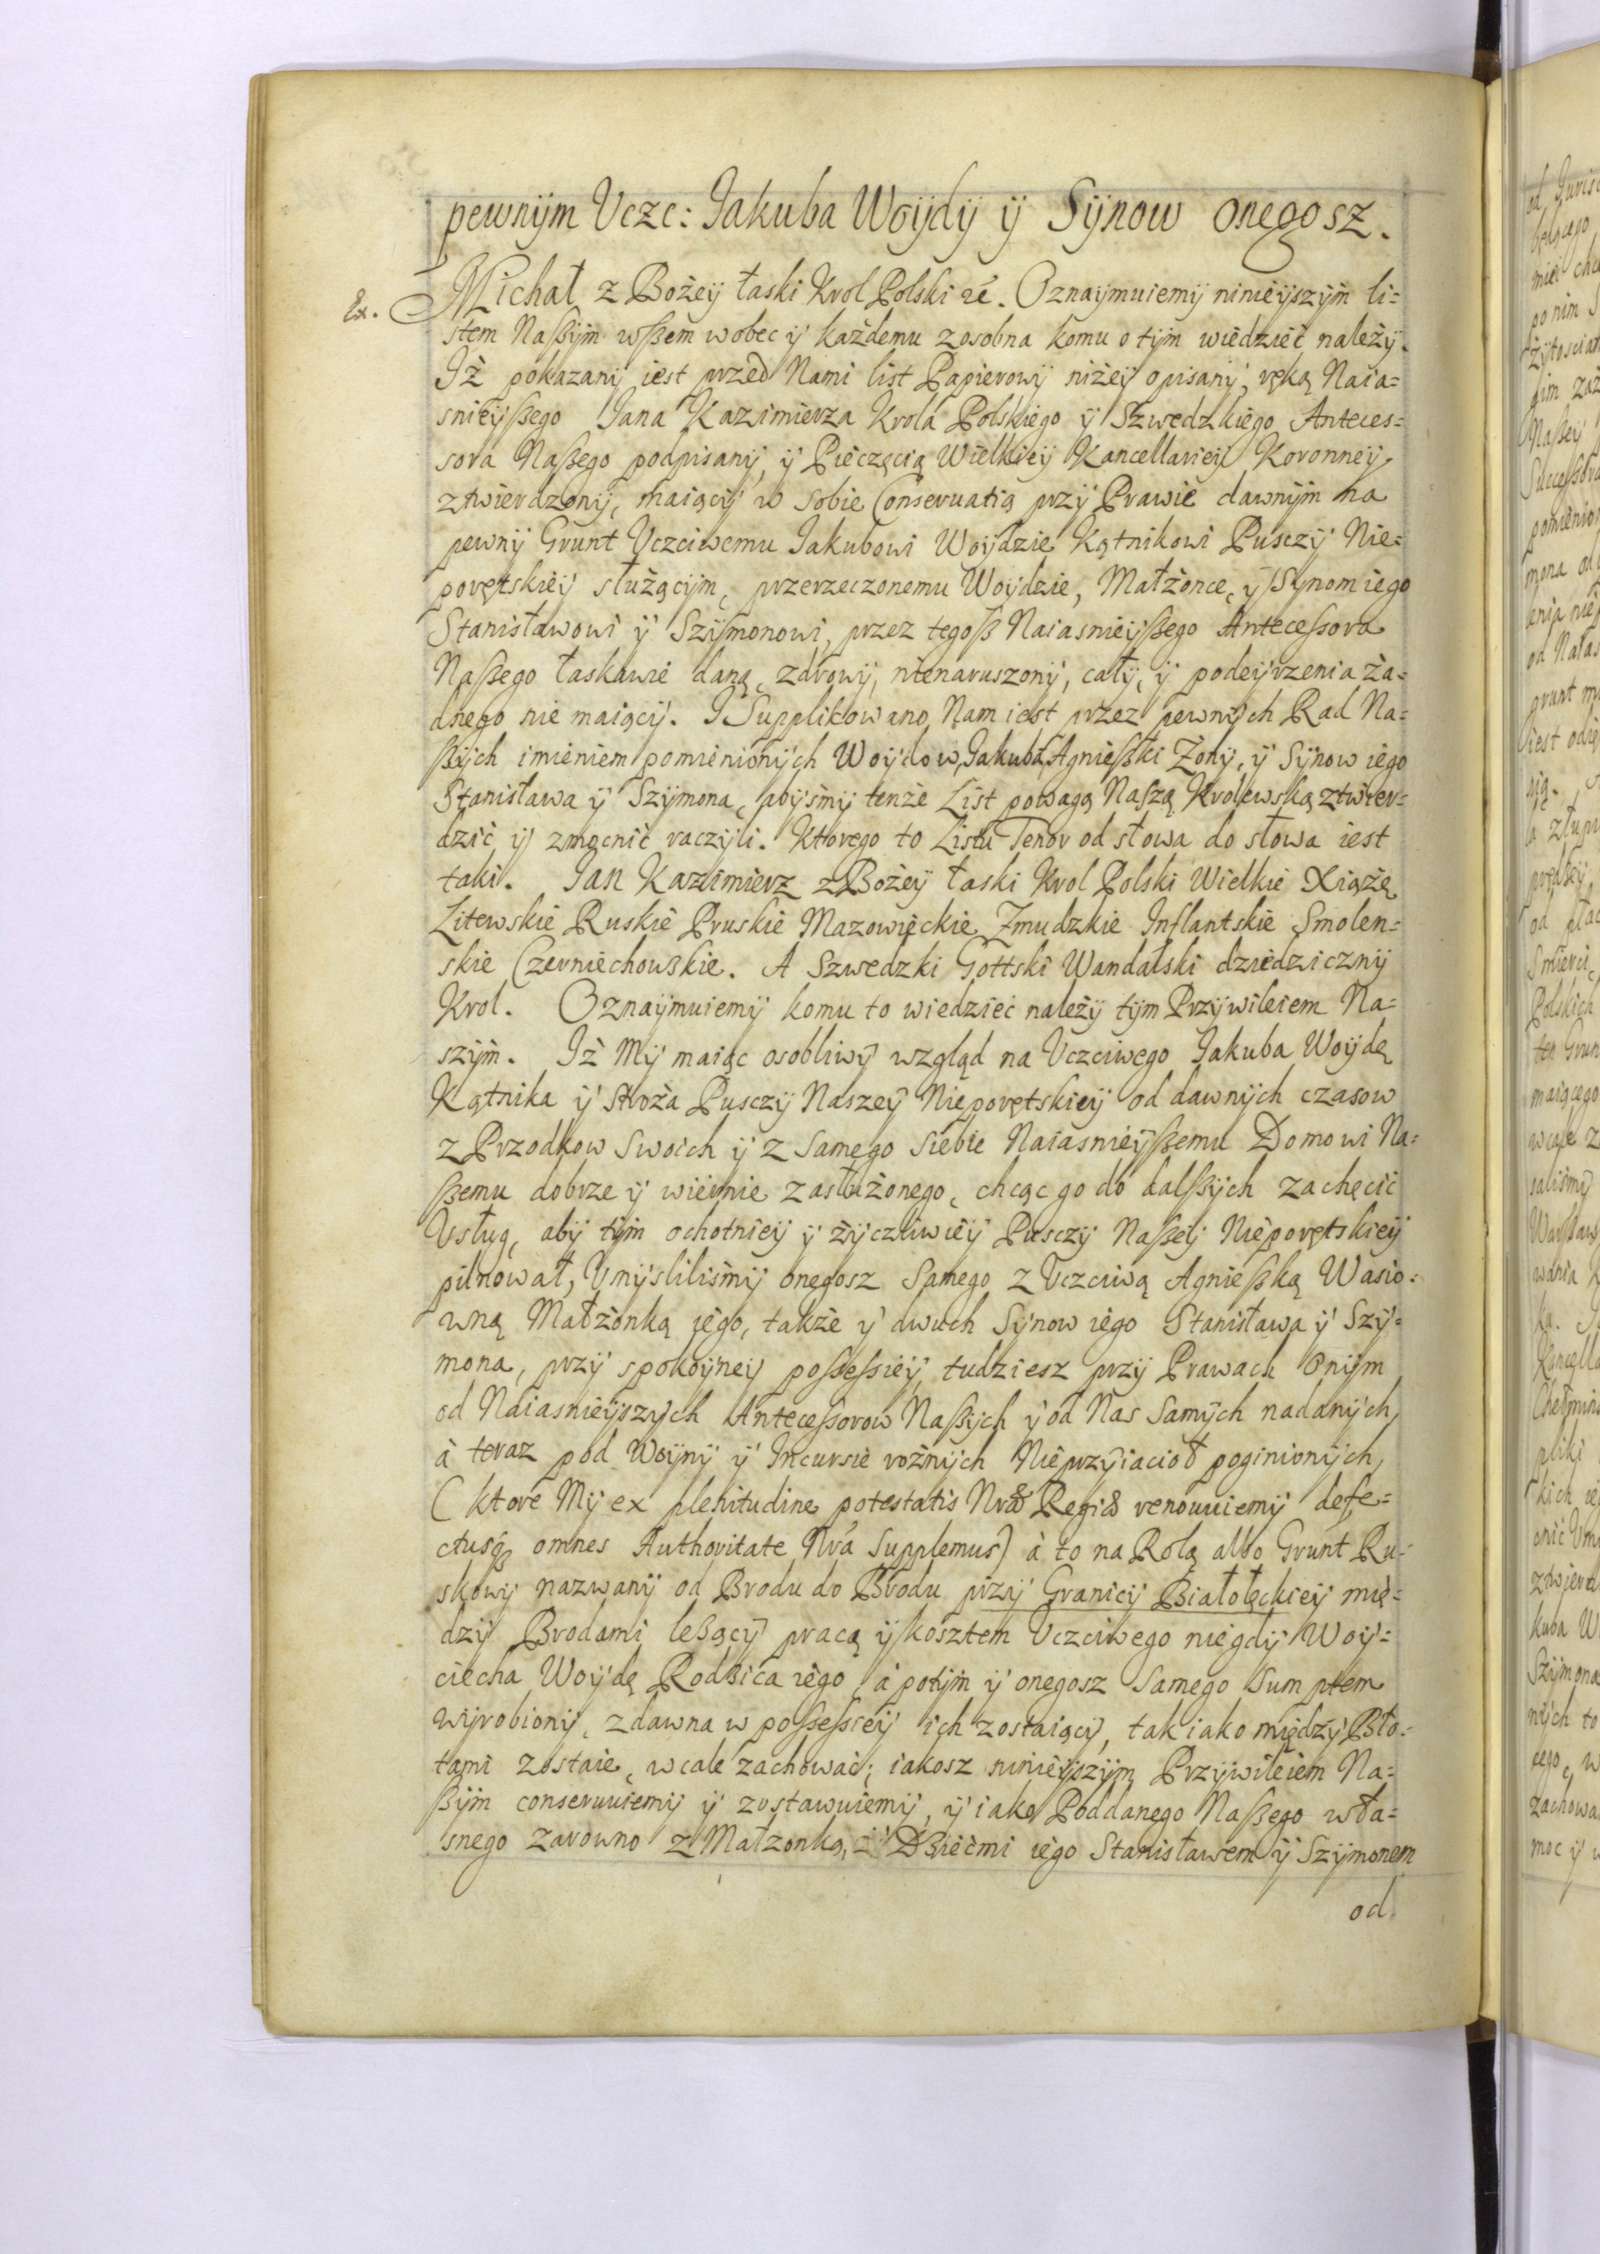 pewnym Vczc: Jakuba Woydy y Synow onegosz.
Ex. Michał z Bożey łaski Krol Polski &c. Oznaymuiemy ninieyszym li=
stem Naßym wßem wobec y każdemu zosobna komu o tym wiedzieć należy.
Iż pokazany iest przed Nami list Papierowy niżey opisany, ręką Naia=
snieyßego Jana Kazimierza Krola Polskiego y Szwedzkiego Anteces=
sora Naßego podpisany, y Pieczęcią Wielkiey Kancellariey Koronney
ztwierdzony, maiący w sobie Conseruatią przy Prawie dawnym na
pewny Grunt Vczciwemu Jakubowi Woydzie Kątnikowi Pusczy Nie=
porętskiey służącym, przerzeczonemu Woydzie, Małżonce, y Synom iego
Stanisławowi y Szymonowi, przez tegoß Naiasnieyßego Antecessora
Naßego łaskawie daną, zdrowy, nienaruszony, cały, y podeyrzenia ża=
dnego nie maiący. I Supplikowano Nam iest przez pewnych Rad Na=
ßych imieniem pomienionych Woydow, Jakuba, Agnießki Żony, y Synow iego
Stanisława y Szymona, abysmy tenże List powagą Naszą Krolewską ztwier=
dzić y zmocnić raczyli. Ktorego to Listu Tenor od słowa do słowa iest
taki. Jan Kazimierz z Bożey łaski Krol Polski Wielkie Xiążę
Litewskie Ruskie Pruskie Mazowieckie Żmudzkie Inflantskie Smolen=
skie Czerniechowskie. A Szwedzki Gottski Wandalski dziedziczny
Krol. Oznaymuiemy komu to wiedzieć należy tym Przywileiem Na=
szym. Iż My maiąc osobliwy wzgląd na Vczciwego Jakuba Woydę
Kątnika y stroża Pusczy Naszey Nieporętskiey od dawnych czasow
z Przodkow swoich y z samego siebie Naiasnieyßemu Domowi Na=
ßemu dobrze y wiernie zasłużonego, chcąc go do dalßych zachęcić
Vsług, aby tym ochotniey y życzliwiey Pusczy Naßey Nieporętskiey
pilnował, Vmyslilismy onegosz samego z Vczciwą Agnießką Wasio=
wną Małżonką iego, także y dwuch Synow iego Stanisława y Szy=
mona, przy spokoyney possessiey, tudziesz przy Prawach onym
od Naiasnieyszych Antecessorow Naßych y od Nas samych nadanych,
à teraz pod Woyny y Incursie rożnych Nieprzyiacioł poginionych,
(ktore My ex plenitudine potestatis Nræ Regiæ renouuiemy defe=
ctusq; omnes Authoritate Nrá supplemus) à to na Rolą albo Grunt Ru=
skowy nazwany od Brodu do Brodu przy Granicy Białołęckiey mię=
dzy Brodami leßący pracą y kosztem Vczciwego niegdy Woy=
ciecha Woydę Rodzica iego, à potym y onegosz samego sumptem
wyrobiony, zdawna w possessiey ich zostaiący, tak iako między Bło=
tami zostaie, wcale zachować; iakosz ninieyszym Przywileiem Na=
ßym conseruuiemy y zostawuiemy, y iako Poddanego Naßego wła=
snego zarowno z Małżonką, y Dziećmi iego Stanisławem y Szymonem
od